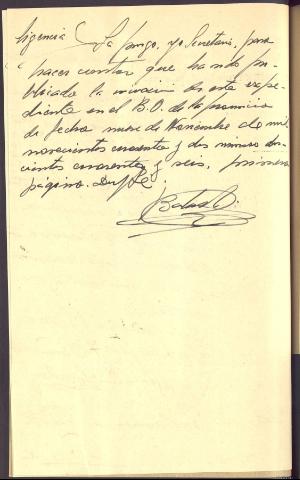 ligencia La pongo, yo Secretario, para
hacer constar que ha sido pu-
blicado la iniciación de este expe-
diente en el B.O. de la provincia
de fecha nueve de Noviembre de mil
novecientos cincuenta y dos número dos-
cientos cincuenta y seis, primera
página. Doy fé